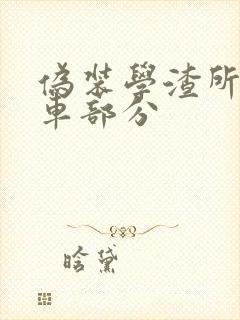 偽裝學渣所
車部分
晗黛